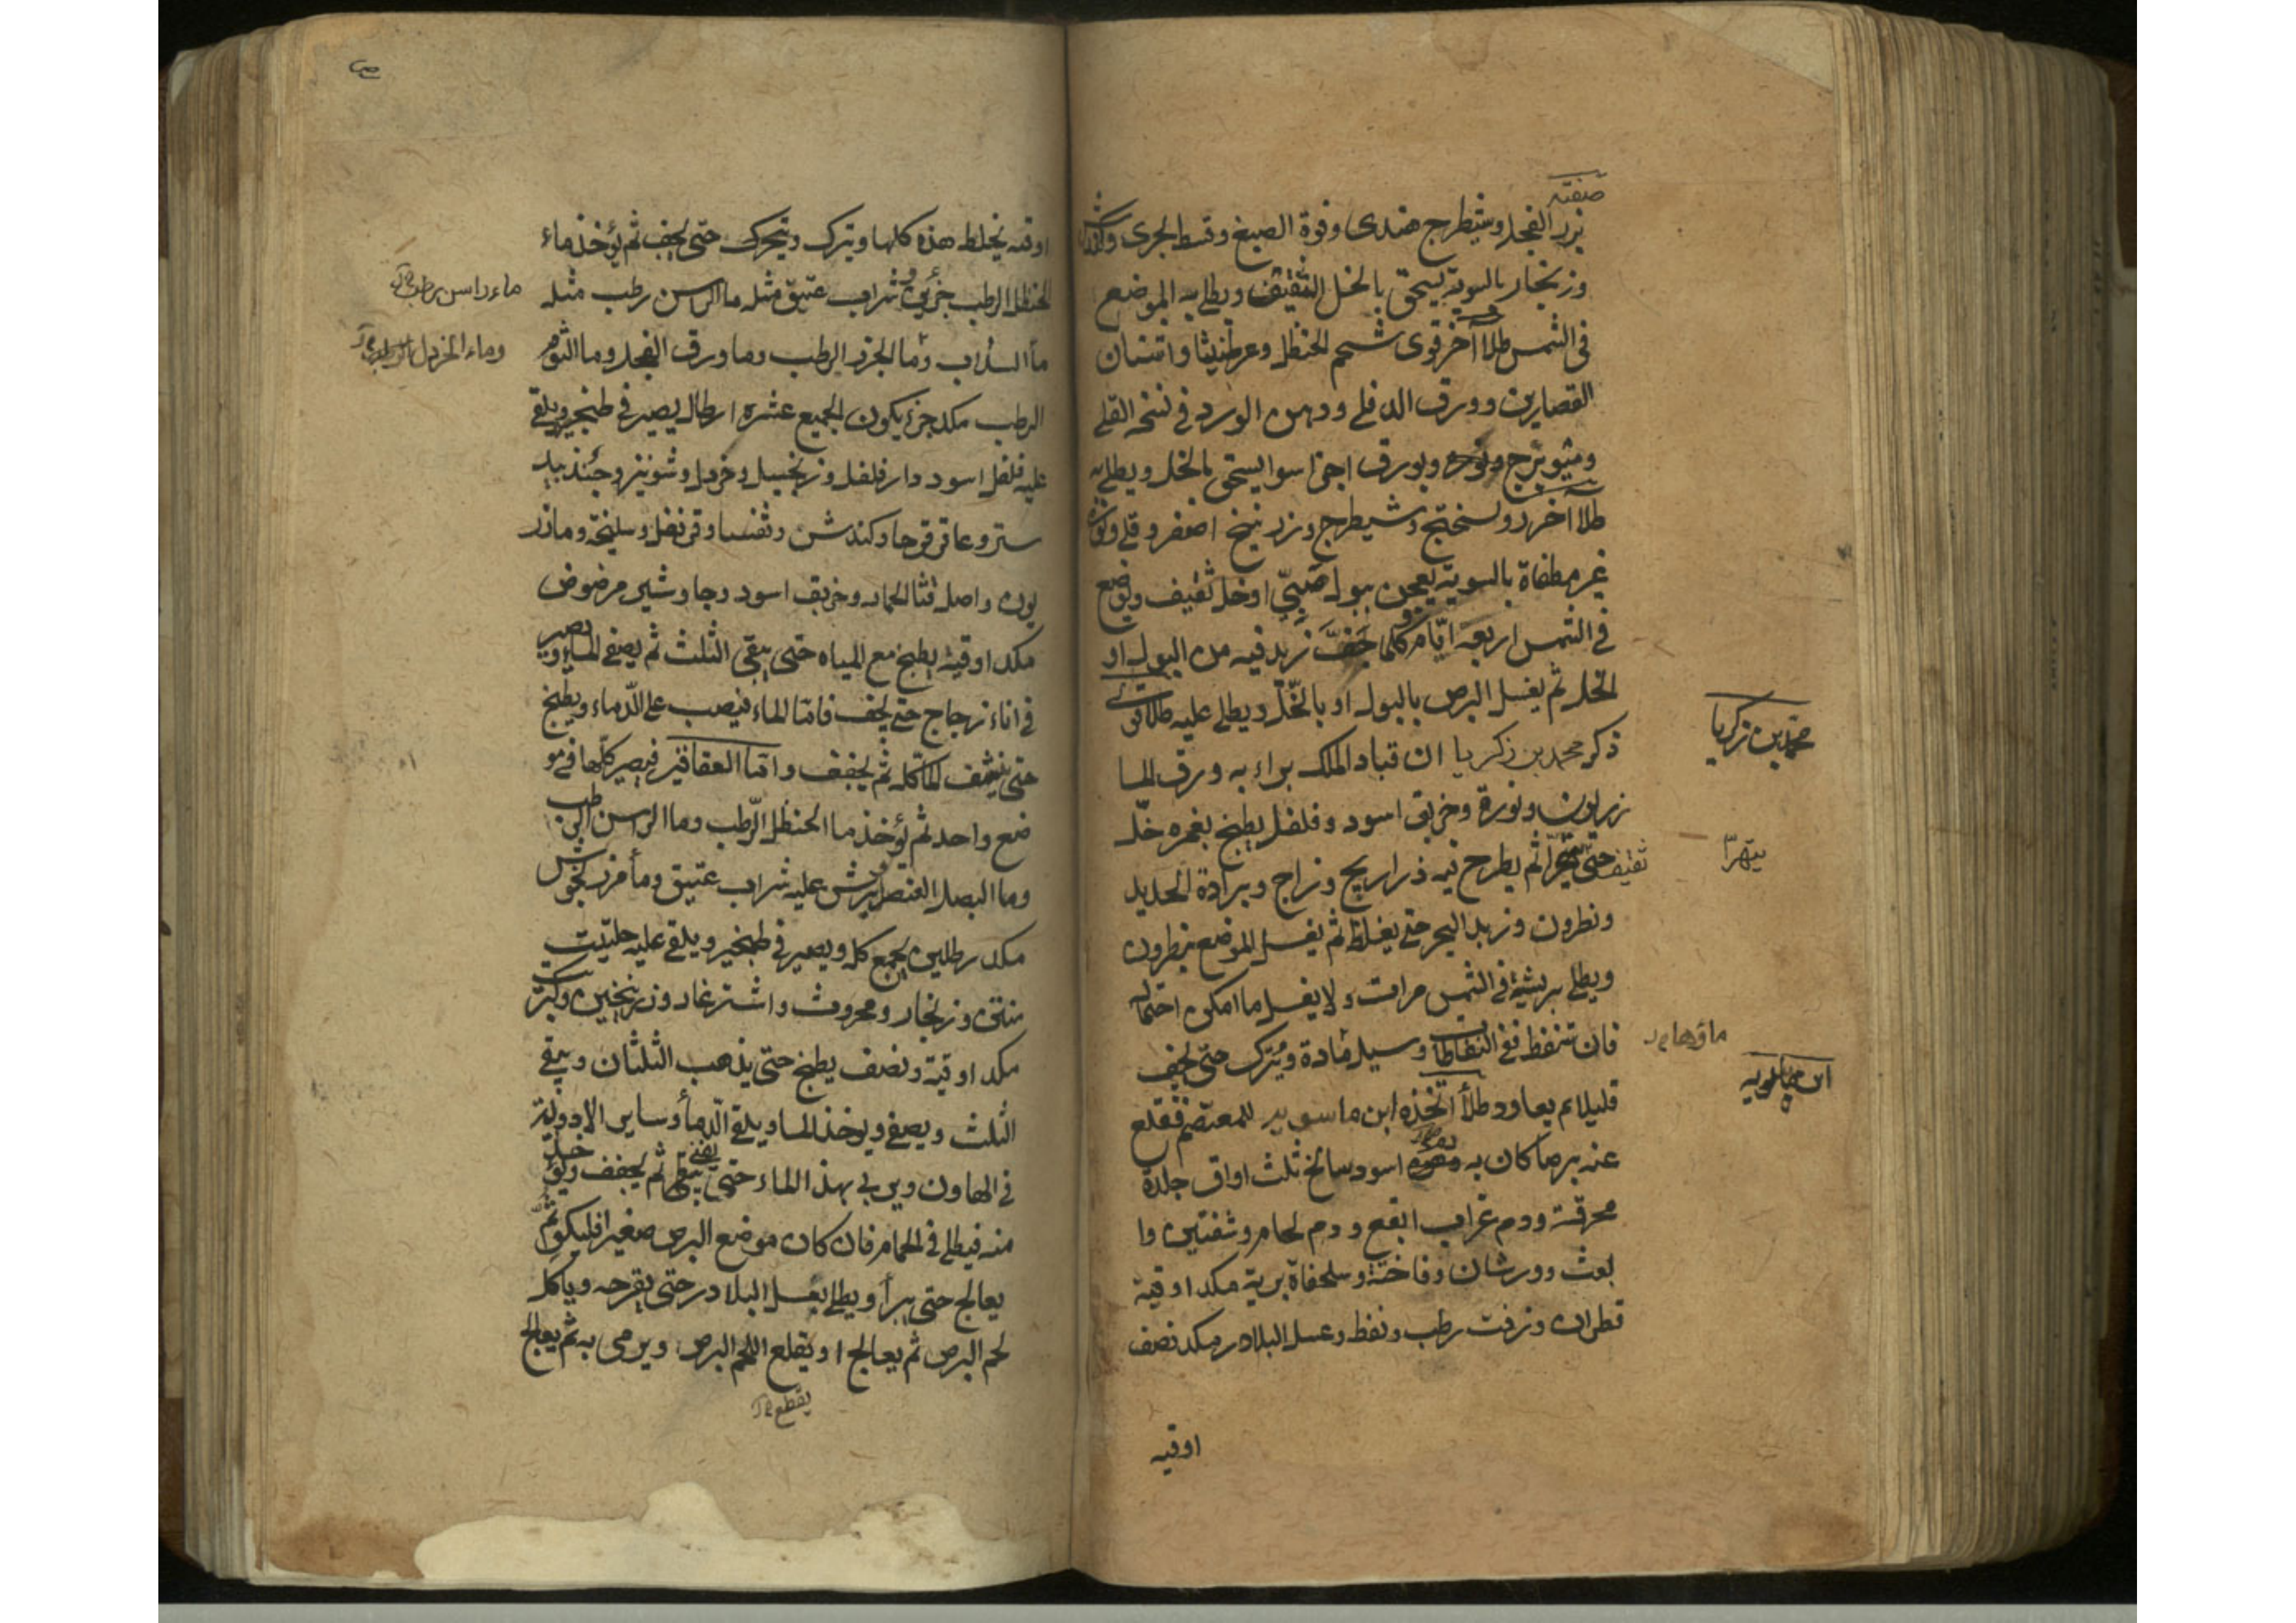 صفته
بزر الفجل وشيطرج هندى وفوة الصبغ وقسط البحرى وكندش
وزنجار بالسوية يسحق بالخل الثقيف ويطلى به الموضع
فى الشمس طلاآخر قوى شحم الحنظل وعرطنيثا واشنان
القصارين وورق الدفلى ودهن الورد فى نسخه القلى
وميويزج ونوره وبورق اجزا سوا يسحق بالخل ويطلى به
طلا آخر روسختج وشيطرج وزرنيخ اصفر وقلى ونورة
غير مطفاة بالسوية يعجن ببول صبىّ او خل ثقيف ويوضع
فى الشمس اربعة ايّام وكلما جَفَّ زيد فيه من البول او
الخل ثم يغسل البرص بالبول او بالخّل ويطلى عليه طلاقوى
ذكر محمد بن زكريا ان قباد الملك براء به ورق الما
زريون ونورة وخربق اسود وفلفل يطبخ بغمره خلّ
ثقيف حتى يتهرّا ثم يطرح فيه ذراريح وزاج وبرادة الحديد
ونطرون وزبد البحر حتى يغلظ ثم يغسل الموضع بنطرون
ويطلى بريشة فى الشمس مرات ولا يغسل ما امكن احتماله
فان تنفط ففى النفاطات وسيل مادة ويُترك حتى يجف
قليلا ثم يعاود طلأ اتخذه ابن ماسويه للمعتصم فقلع
عنه برصا كان به اسود سالخ ثلث اواق جلدة
محرقة ودم غراب ابقع ودم لحام وشفنين وا
بغث وورشان وفاخته وسلحفاة برية مكد اوقية
قطران وزفت رطب ونفط وعسل البلادر مكد نصف
اوقيه
محمّد بن زكريا
يتهرّا
ماؤها
ابن ماسويه
اوقيه يخلط هذه كلها ويترك ويتحرك حتى يجف ثم يؤخذ ماء
الحنظل الرطب جزئين وشراب عتيق مثله ما الراسن رطب مثله
مأ السذاب ومأ الجزر الرطب وما ورق الفجل وما الثوم
الرطب مكد جزء يكون الجميع عشرة ارطال يصير فى طنجير ويلقى
عليه فلفل اسود دارفلفل وزنجبيل وخردل وشونيز وجندبيد
ستر وعاقرقرحا وكندش وثفسيا وقرنفل وسليخة ومازر
يون واصل قثا الحمار وخربق اسود وجاوشير مرضوض
مكد اوقية يطبخ مع المياه حتى يبقى الثلث ثم يصفى الماء ويصير
فى اناء زجاج حتى يجف فامّا الماء فيصب على الدّماء ويطبخ
حتى ينشف الماكله ثم يجفف وامّا العقاقير فيصير كلّها فى مو
ضع واحد ثم يؤخذ ما الحنظل الرّطب وما الراسن الرطب
وما البصل العنصل يرش عليه شراب عتيق ومأ مرزنجوش
مكد رطلين يجمع كله ويصير فى طنجير ويلقى عليه حلتيت
منتن وزنجار ومحروث واشترغار وزرنيخين وكبريت
مكد اوقية ونصف يطبخ حتى يذهب الثلثان ويبقى
الثلث ويصفى ويوخذ الما ويلقى الدّمأ وساير الادوية
فى الهاون ويربى بهذ الماء حتى يفنى ثم يجفف ويؤخذ
منه فيطلى فى الحمام فان كان موضع البرص صغيرا فليكوى ثم
يعالج حتى يبرأ ويطلى بعسل البلادر حتى يقرحه وياكل
لحم البرص ثم يعالج او يقلع اللحم البرص ويرمى به ثم يعالج
يقطع
ماء راسن رطب
وماء الخردل الرطب